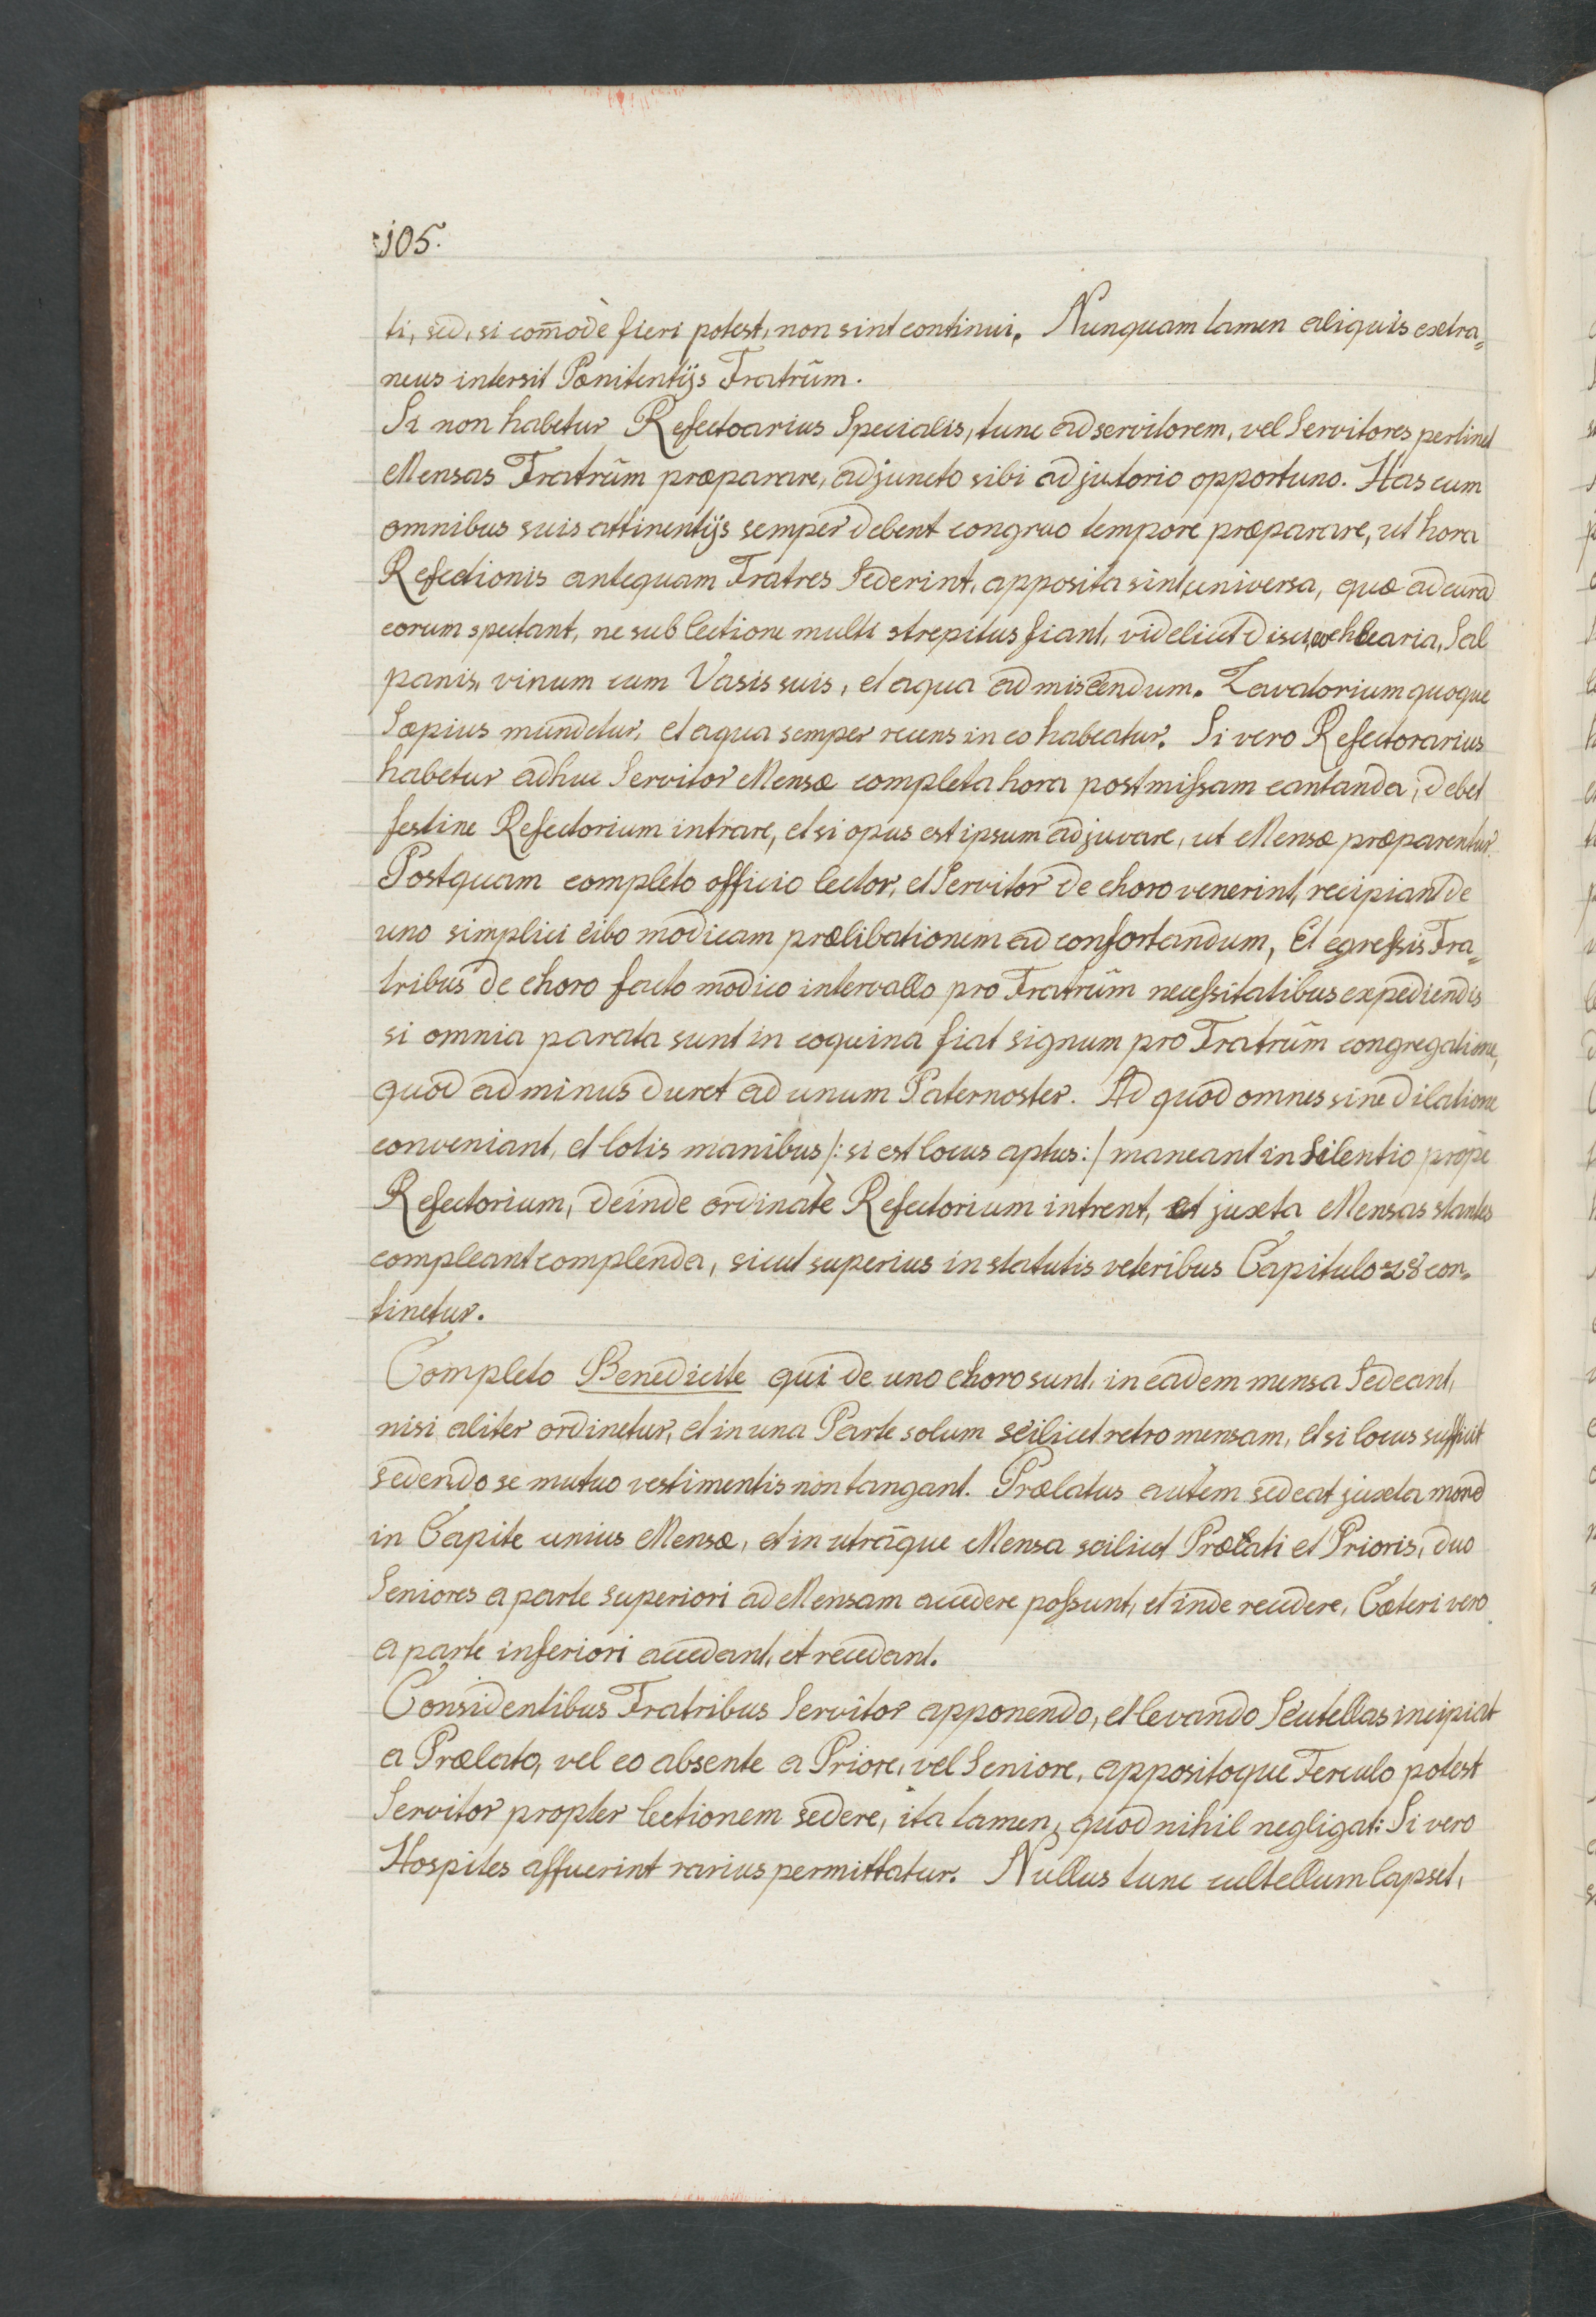 105.
ti, sed, si com̄odè fieri potest, non sint continui. Nunquam tamen aliquis extra=
neus intersit Pœnitentijs Fratrūm.
Si non habetur Refectoarius Specialis, tunc ad servitorem, vel Servitores pertinet
Mensas Fratrūm præparare, adjuncto sibi adjutorio opportuno. Has cum
omnibus suis attinentijs semper debent congruo tempore præparare, ut hora
Refectionis antequam Fratres Sederint, apposita sint universa, quæ ad curā
eorum spectant, ne sub lectione multi strepitus fiant, videlicet disci, cochlearia, Sal
panis, vinum cum Vasis suis, et aqua ad miscendum. Lavatorium quoque
Sæpius mundetur, et aqua semper recens in eo habeatur. Si vero Refectorarius
habetur adhuc Servitor Mensæ completa hora post missam cantanda, debet
festine Refectorium intrare, et si opus est ipsum adjuvare, ut Mensæ præparentur.
Postquam completo officio lector, et Servitor de choro venerint, recipiant de
uno simplici cibo modicam prælibationem ad confortandum, Et egressis Fra=
tribus de choro facto modico intervallo pro Fratrūm necessitatibus expediendis
si omnia parata sunt in coquina fiat signum pro Fratrūm congregatione,
quod ad minus duret ad unum Paternoster. Ad quod omnes sine dilatione
conveniant, et lotis manibus /: si est locus aptus :/ maneant in Silentio propè
Refectorium, deinde ordinatè Refectorium intrent, et juxta Mensas stantes
compleant complenda, sicut superius in statutis veteribus Capitulo 28 con=
tinetur.
Completo Benedicite qui de uno choro sunt, in eadem mensa Sedeant,
nisi aliter ordinetur, et in una Parte solum scilicet retro mensam, et si locus sufficit
sedendo se mutuo vestimentis non tangant. Prælatus autem sedeat juxta morē
in Capite unius Mensæ, et in utrāque Mensa scilicet Prælati et Prioris, duo
Seniores a parte superiori ad Mensam accedere possunt, et inde recedere, Cæteri vero
a parte inferiori accedant, et recedant.
Considentibus Fratribus Servitor apponendo, et levando Scutellas incipiat
a Prælato, vel eo absente a Priore, vel Seniore, appositoque Ferculo potest
Servitor propter lectionem sedere, ita tamen, quod nihil negligat: Si vero
Hospites affuerint rarius permittatur. Nullus tunc cultellum lapset,